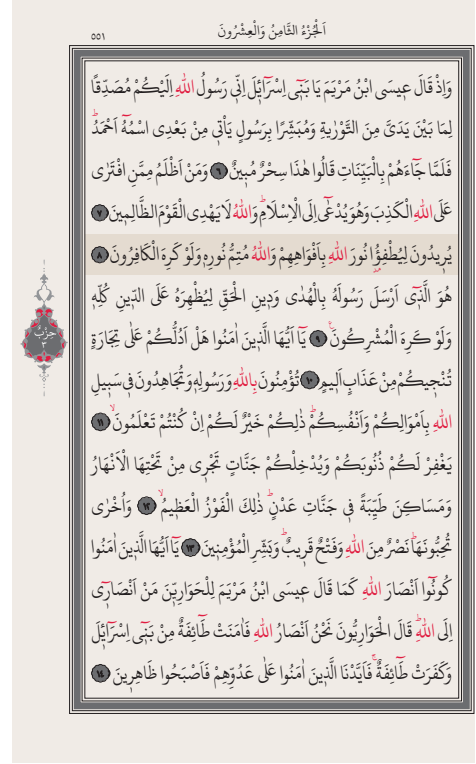 اَلْجُزْءُ الثَّامِنُ وَالْعِشْرُونَ
٥٥١
وَاِذْ قَالَ عِيسَى ابْنُ مَرْيَمَ يَا بَنٖٓي اِسْرَٓائٖلَ اِنّٖي رَسُولُ اللّٰهِ اِلَيْكُمْ مُصَدِّقًا
لِمَا بَيْنَ يَدَيَّ مِنَ التَّوْرٰيةِ وَمُبَشِّرًا بِرَسُولٍ يَأْتٖي مِنْ بَعْدِي اسْمُهُٓ اَحْمَدُؕ
فَلَمَّا جَٓاءَهُمْ بِالْبَيِّنَاتِ قَالُوا هٰذَا سِحْرٌ مُبٖينٌ ٦ وَمَنْ اَظْلَمُ مِمَّنِ افْتَرٰى
عَلَى اللّٰهِ الْكَذِبَ وَهُوَ يُدْعٰٓى اِلَى الْاِسْلَامِؕ وَاللّٰهُ لَا يَهْدِي الْقَوْمَ الظَّالِمٖينَ ٧
يُرٖيدُونَ لِيُطْفِؤُ۫ا نُورَ اللّٰهِ بِاَفْوَاهِهِمْ وَاللّٰهُ مُتِمُّ نُورِهٖ وَلَوْ كَرِهَ الْكَافِرُونَ ٨
هُوَ الَّذٖٓي اَرْسَلَ رَسُولَهُ بِالْهُدٰى وَدٖينِ الْحَقِّ لِيُظْهِرَهُ عَلَى الدّٖينِ كُلِّهٖ
وَلَوْ كَرِهَ الْمُشْرِكُونَ۟ ٩ يَٓا اَيُّهَا الَّذٖينَ اٰمَنُوا هَلْ اَدُلُّكُمْ عَلٰى تِجَارَةٍ
تُنْجٖيكُمْ مِنْ عَذَابٍ اَلٖيمٍ ١٠ تُؤْمِنُونَ بِاللّٰهِ وَرَسُولِهٖ وَتُجَاهِدُونَ فٖي سَبٖيلِ
اللّٰهِ بِاَمْوَالِكُمْ وَاَنْفُسِكُمْؕ ذٰلِكُمْ خَيْرٌ لَكُمْ اِنْ كُنْتُمْ تَعْلَمُونَۙ ١١
يَغْفِرْ لَكُمْ ذُنُوبَكُمْ وَيُدْخِلْكُمْ جَنَّاتٍ تَجْرٖي مِنْ تَحْتِهَا الْاَنْهَارُ
وَمَسَاكِنَ طَيِّبَةً فٖي جَنَّاتِ عَدْنٍؕ ذٰلِكَ الْفَوْزُ الْعَظٖيمُۙ ١٢ وَاُخْرٰى
تُحِبُّونَهَاؕ نَصْرٌ مِنَ اللّٰهِ وَفَتْحٌ قَرٖيبٌؕ وَبَشِّرِ الْمُؤْمِنٖينَ ١٣ يَٓا اَيُّهَا الَّذٖينَ اٰمَنُوا
كُونُٓوا اَنْصَارَ اللّٰهِ كَمَا قَالَ عٖيسَى ابْنُ مَرْيَمَ لِلْحَوَارِيّٖنَ مَنْ اَنْصَارٖٓي
اِلَى اللّٰهِؕ قَالَ الْحَوَارِيُّونَ نَحْنُ اَنْصَارُ اللّٰهِ فَاٰمَنَتْ طَٓائِفَةٌ مِنْ بَنٖٓي اِسْرَٓائٖلَ
وَكَفَرَتْ طَٓائِفَةٌۚ فَاَيَّدْنَا الَّذٖينَ اٰمَنُوا عَلٰى عَدُوِّهِمْ فَاَصْبَحُوا ظَاهِرٖينَ ١٤
حِزْبٌ
٣